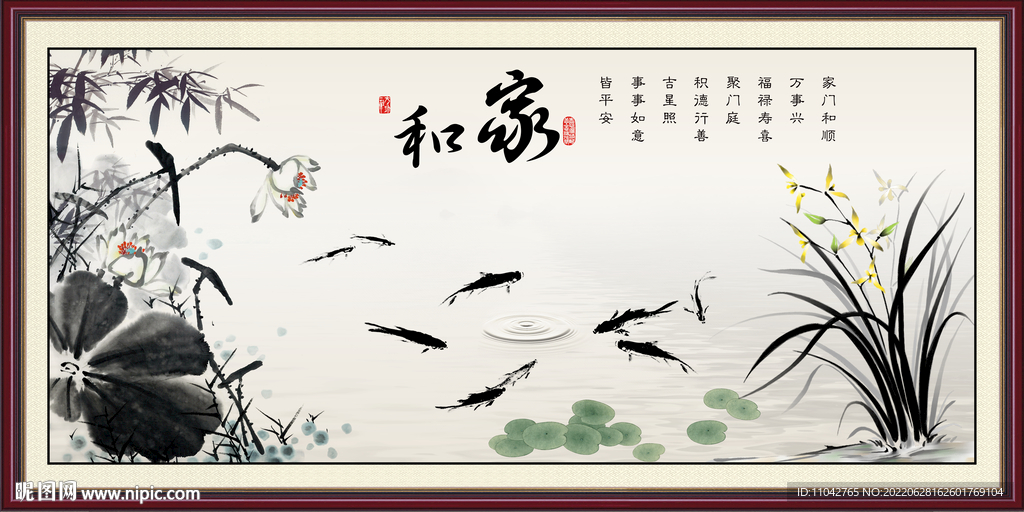 家和
家门和顺
万事兴
福禄寿喜
聚门庭
积德行善
吉星照
事事如意
皆平安
昵图网 www.nipic.com
ID:11042765 NO:20220628162601769104